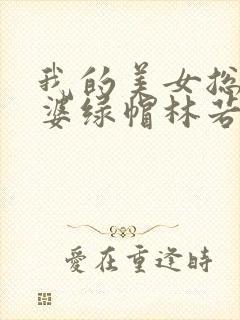 我的美女总
婆绿帽林若
愛在重逢時